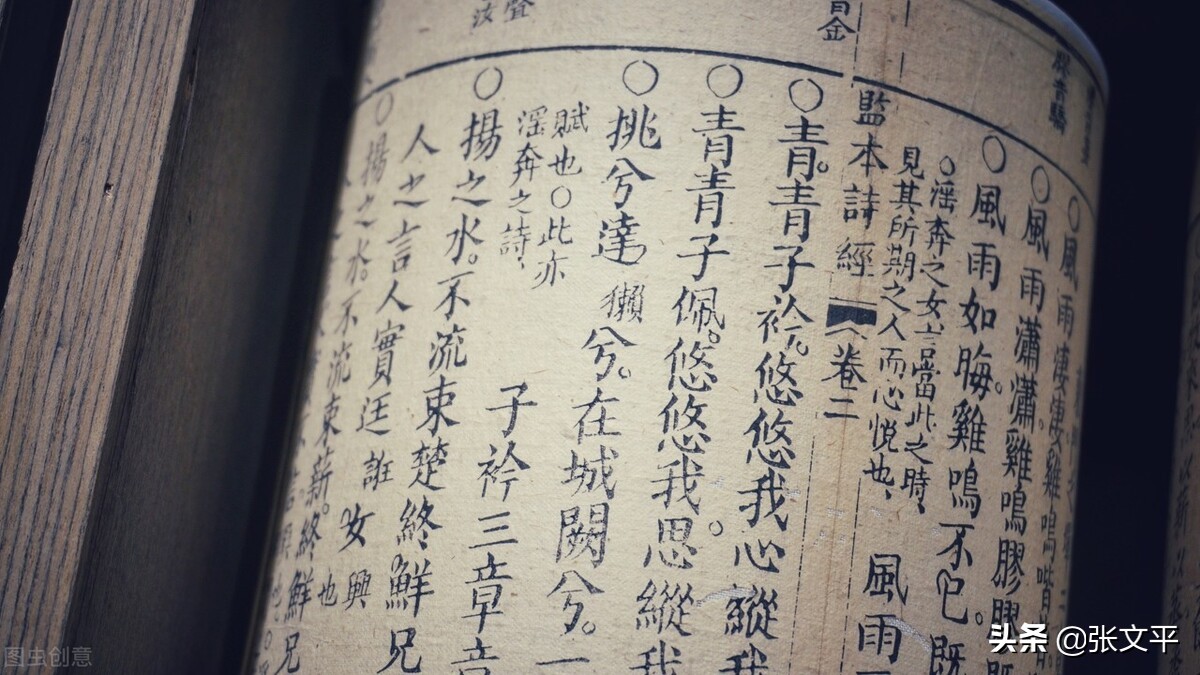 ○風雨淒淒雞鳴喈
○風雨瀟瀟雞鳴膠膠
○風雨如晦雞鳴不已。既
○淫奔之女言當此之時、
見其所期之人而心悅也、
風雨
監本詩經
卷二
○青。青子衿。悠悠我心縱我
○青青子佩。悠悠我思。縱我
○挑兮達獺兮。在城闕兮。一
賦也○此亦
淫奔之詩、
子衿三章章
○揚之水。不流束楚終鮮兄
人之言人實迋誑女也興
○揚之水。不流束薪。終鮮兄
图虫创意
头条 @张文平